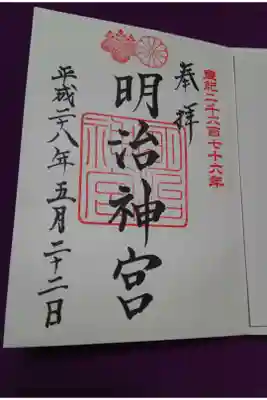 皇紀二千六百七十六年
奉拝
明治神宮
平成二十八年五月二十二日